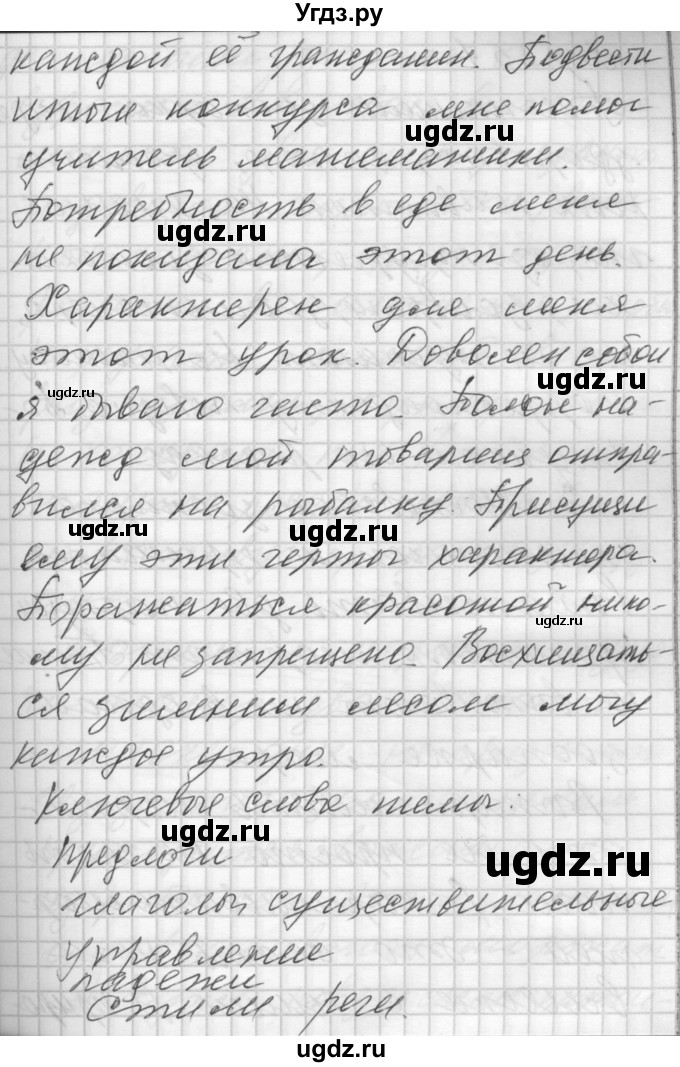 Угдз.ру
каждой её гражданин. Подвести
итоги конкурса мне помог
ugdz.ru
учитель математики.
Потребность в еде меня
ugdz.ru
не покидала этот день.
Характерен для меня
этот урок. Доволен собой
ugdz.ru
ugdz.ru
я бываю часто. Полон на-
дежд мой товарищ отпра-
вился на рыбалку. Присущи
ugdz.ru
ugdz.ru
ему эти черты характера.
Поражаться красотой нико-
ugdz.ru
му не запрещено. Восхищать-
ся зимним лесом могу
каждое утро.
Ключевые слова темы:
ugdz.ru
предлоги
ugdz.ru
глаголы, существительные
управление
падежи
стили речи.
ugdz.ru
ugdz.ru